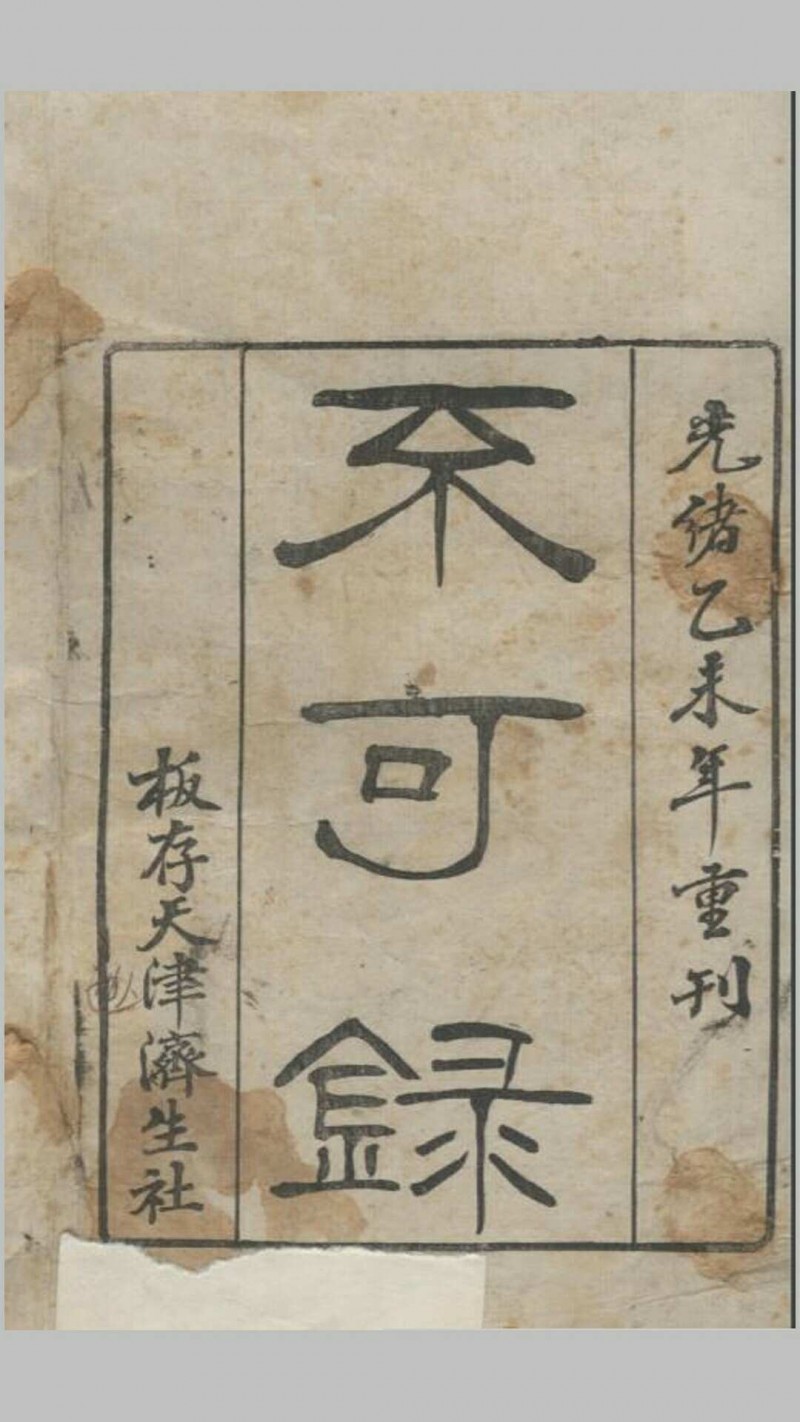 光緒乙未年重刊
不可錄
板存天津濟生社